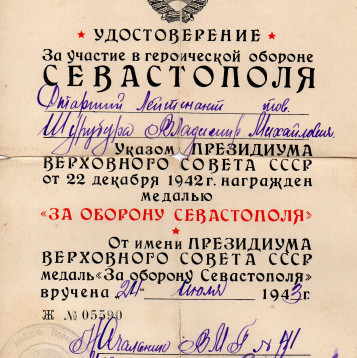 ★ УДОСТОВЕРЕНИЕ ★
За участие в героической обороне
СЕВАСТОПОЛЯ
Старший Лейтенант тов.
Шурубура Владимир Михайлович
Указом ПРЕЗИДИУМА
ВЕРХОВНОГО СОВЕТА СССР
от 22 декабря 1942 г. награжден
медалью
«ЗА ОБОРОНУ СЕВАСТОПОЛЯ»
От имени ПРЕЗИДИУМА
ВЕРХОВНОГО СОВЕТА СССР
медаль «За оборону Севастополя»
вручена 24 июля 1943 г.
Ж № 05590
Начальник ВМГ № 41